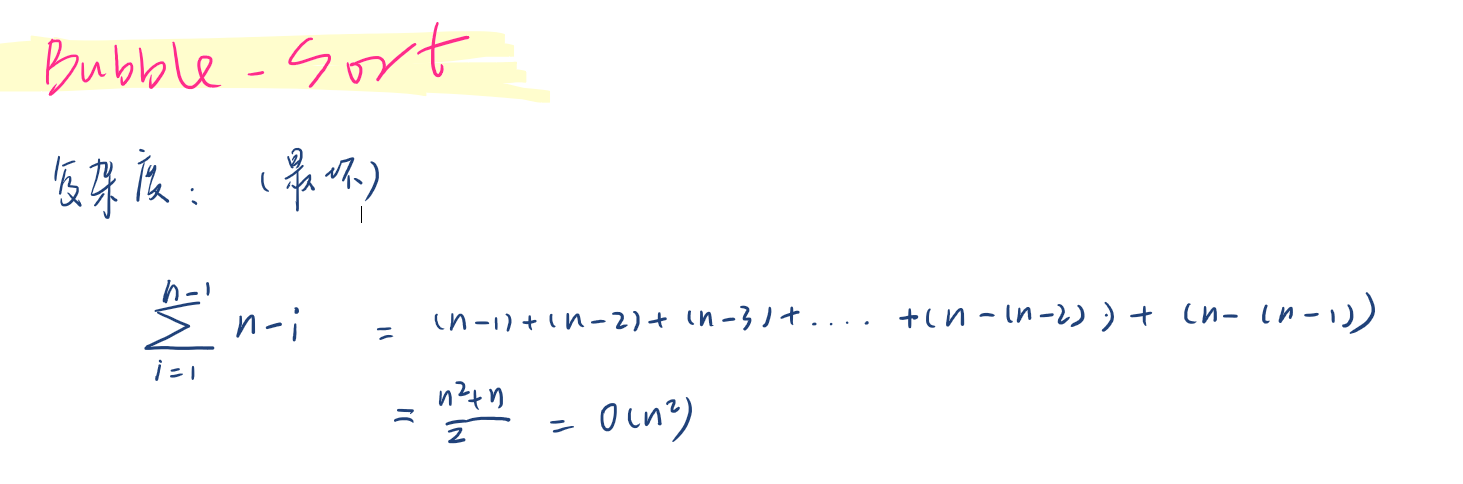 Bubble - Sort
复杂度: (最坏)
n-1
∑ n-i = (n-1)+(n-2)+(n-3)+.....+(n-(n-2))+(n-(n-1))
i=1
= n²+n/2 = O(n²)